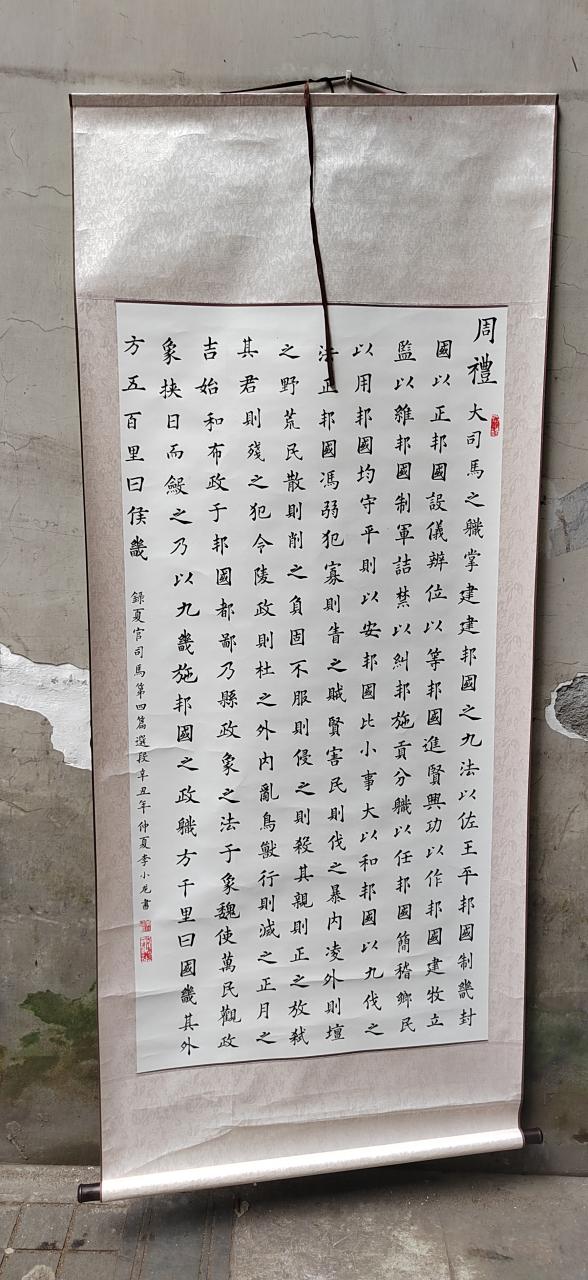 周禮 大司馬之職掌建建邦國之九法以佐王平邦國制畿封
國以正邦國設儀辨位以等邦國進賢興功以作邦國建牧立
監以維邦國制軍詰禁以糾邦施貢分職以任邦國簡稽鄉民
以用邦國均守平則以安邦國比小事大以和邦國以九伐之
法正邦國馮弱犯寡則眚之賊賢害民則伐之暴內凌外則壇
之野荒民散則削之負固不服則侵之則殺其親則正之放弒
其君則殘之犯令陵政則杜之外內亂鳥獸行則滅之正月之
吉始和布政于邦國都鄙乃縣政象之法于象魏使萬民觀政
象挾日而斂之乃以九畿施邦國之政職方千里曰國畿其外
方五百里曰侯畿
錄夏官司馬第四篇選段辛丑年仲夏李小龙書